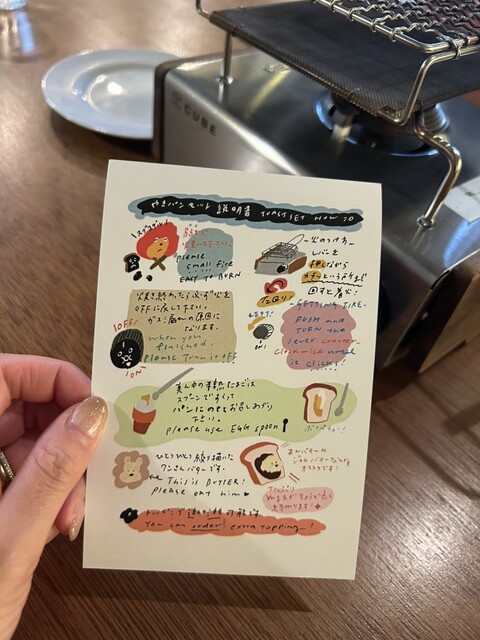 CUBE
やきパンセット 説明書 TOAST SET HOW TO
弱火で
焼いて下さい。
please
small fire
EASY TO BURN
-火のつけ方-
レバーを
押しながら
カチッというまで
回すと着火!
-GETTING FIRE-
PUSH and
TURN the
lever counter-
clockwise until
it clicks!
ON!
焼き終わったら必ず火を
OFFに戻して下さい。
ガス漏れの原因に
なります。
when you
finished.
please Turn it off
OFF!
ON
真ん中の半熟たまごは
スプーンですくって
パンにのせてお召し上がり
下さい。
please use EGG spoon!
ひとつひとつ絞り描いた
ワンさんバターです。
This is BUTTER!
please eat him
あんバターや
ジャムバターなどが
オススメです!
トッピング追加注文可能です
You can order extra topping!